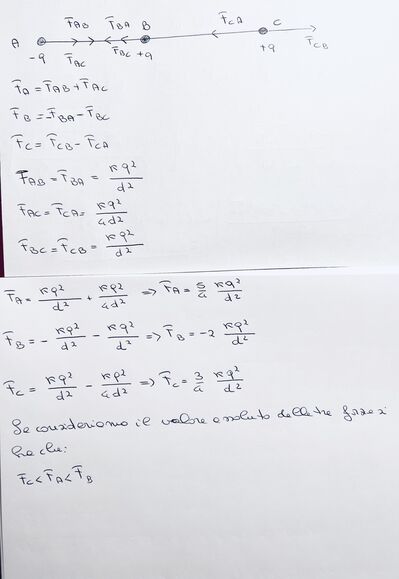 F̄AB F̄BA B F̄CA C
A
-q F̄AC F̄BC +q +q F̄CB
F̄A = F̄AB + F̄AC
F̄B = -F̄BA - F̄BC
F̄C = F̄CB - F̄CA
F̄AB = F̄BA = kq²/d²
F̄AC = F̄CA = kq²/4d²
F̄BC = F̄CB = kq²/d²
F̄A = kq²/d² + kq²/4d² => F̄A = 5/4 kq²/d²
F̄B = - kq²/d² - kq²/d² => F̄B = -2 kq²/d²
F̄C = kq²/d² - kq²/4d² => F̄C = 3/4 kq²/d²
Se consideriamo il valore assoluto delle tre forze si
ha che:
F̄C < F̄A < F̄B